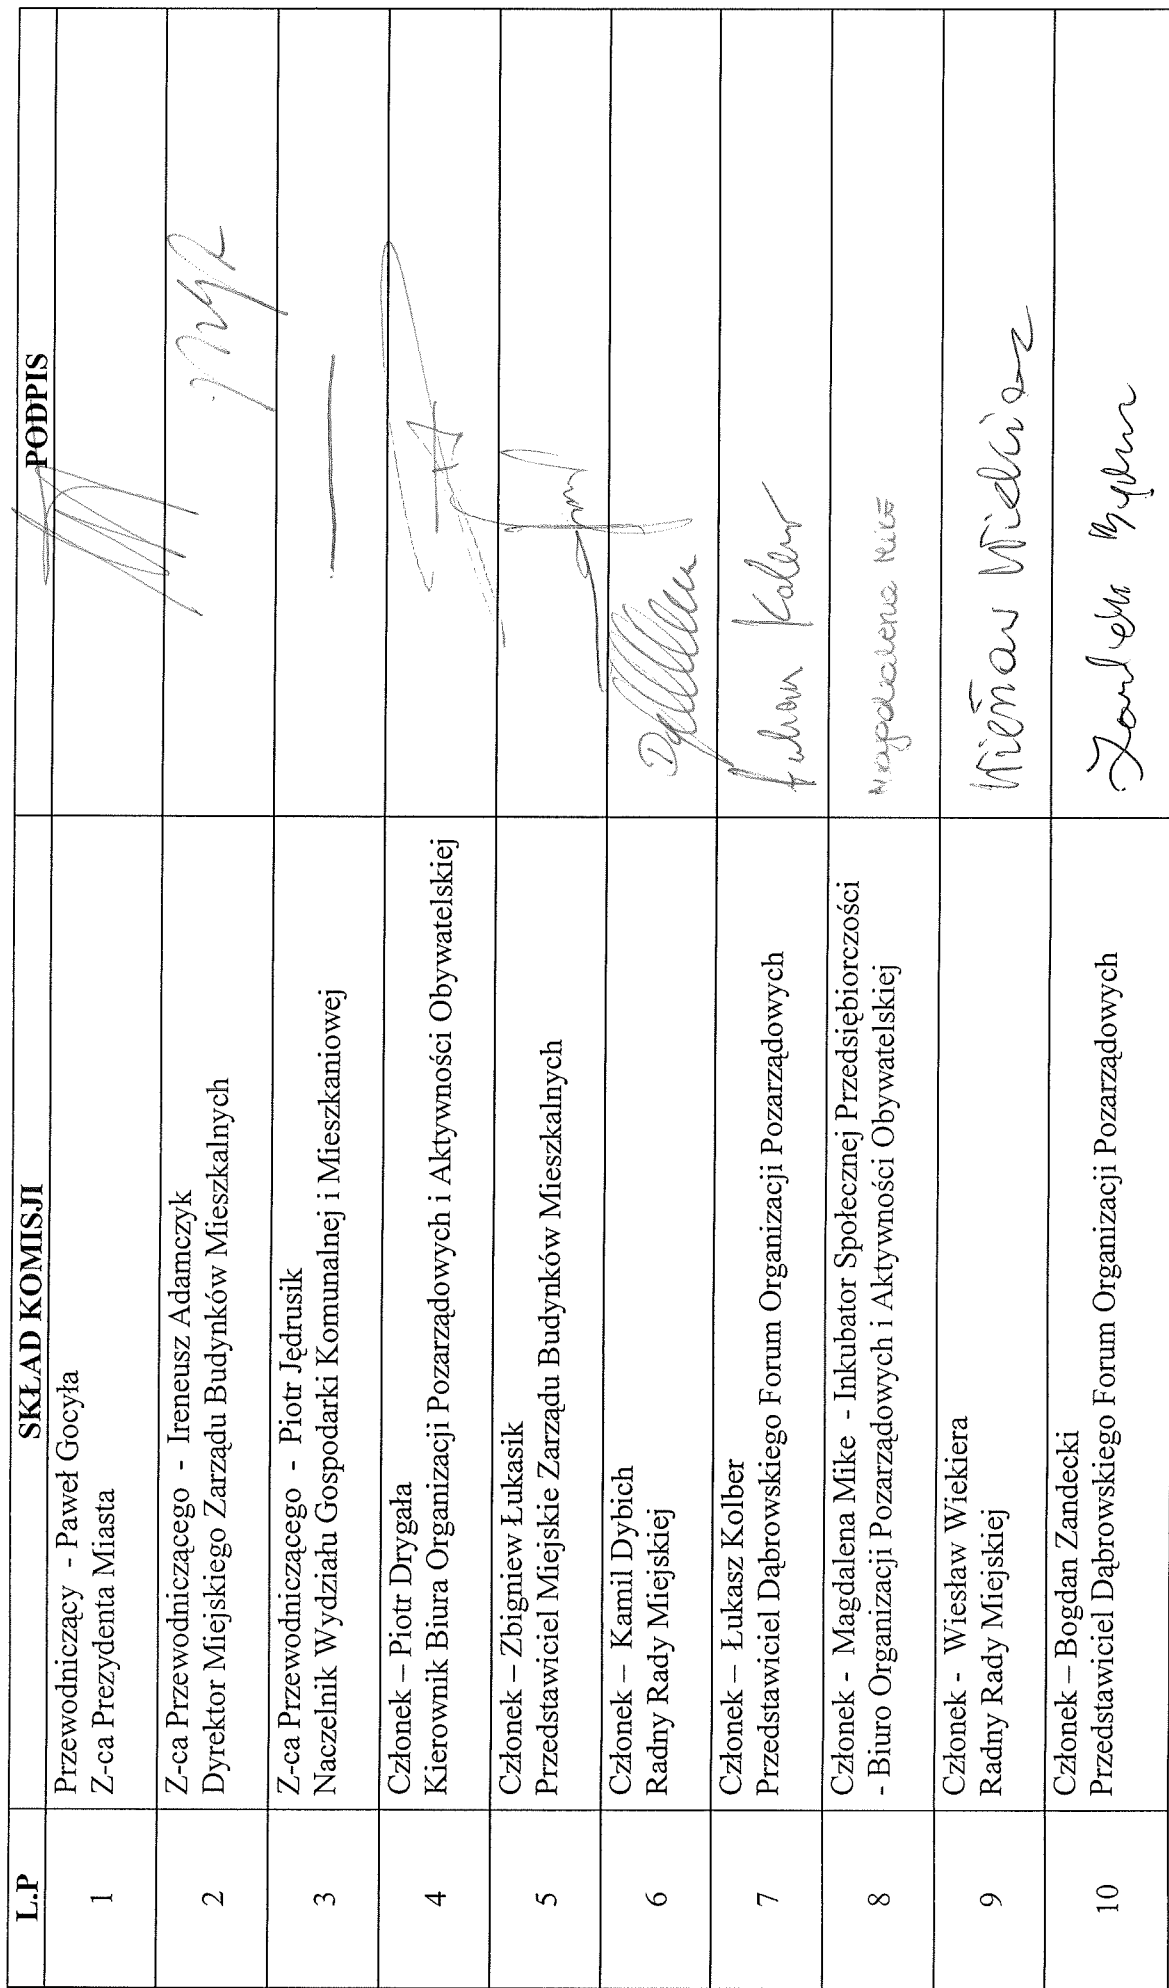 L.P SKŁAD KOMISJI PODPIS
1 Przewodniczący - Paweł Gocyła
Z-ca Prezydenta Miasta
2 Z-ca Przewodniczącego - Ireneusz Adamczyk
Dyrektor Miejskiego Zarządu Budynków Mieszkalnych
3 Z-ca Przewodniczącego - Piotr Jędrusik
Naczelnik Wydziału Gospodarki Komunalnej i Mieszkaniowej
4 Członek – Piotr Drygała
Kierownik Biura Organizacji Pozarządowych i Aktywności Obywatelskiej
5 Członek – Zbigniew Łukasik
Przedstawiciel Miejskie Zarządu Budynków Mieszkalnych
6 Członek – Kamil Dybich
Radny Rady Miejskiej
7 Członek – Łukasz Kolber
Przedstawiciel Dąbrowskiego Forum Organizacji Pozarządowych
8 Członek - Magdalena Mike - Inkubator Społecznej Przedsiębiorczości
- Biuro Organizacji Pozarządowych i Aktywności Obywatelskiej
Magdalena Mike
9 Członek - Wiesław Wiekiera
Radny Rady Miejskiej
10 Członek – Bogdan Zandecki
Przedstawiciel Dąbrowskiego Forum Organizacji Pozarządowych